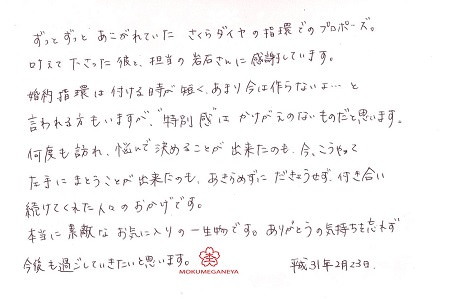 ずっとずっと あこがれていた さくらダイヤの指環でのプロポーズ。
叶えて下さった彼と、担当の岩石さんに感謝しています。
婚約指環は付ける時が短く、あまり今は作らないよ…と
言われる方もいますが、“特別感”はかけがえのないものだと思います。
何度も訪れ、悩んで決めることが出来たのも、今、こうやって
左手にまとうことが出来たのも、あきらめずに だきょうせず、付き合い
続けてくれた人々のおかげです。
本当に素敵な お気に入りの一生物です。ありがとうの気持ちを忘れず
今後も過ごしていきたいと思います。
MOKUMEGANEYA
平成31年2月23日.